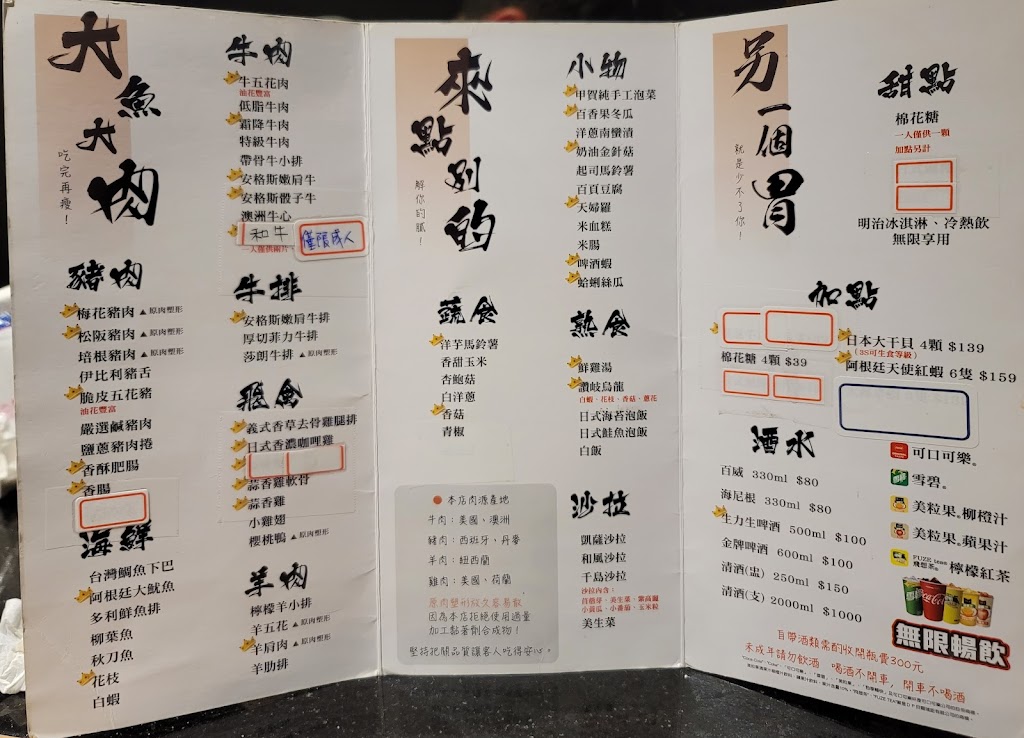 大魚大肉
吃完再瘦！
牛肉
牛五花肉
油花豐富
低脂牛肉
霜降牛肉
特級牛肉
帶骨牛小排
安格斯嫩肩牛
安格斯骰子牛
澳洲牛心
和牛 僅限成人
一人僅供兩片
豬肉
梅花豬肉 ▲原肉塑形
松阪豬肉 ▲原肉塑形
培根豬肉 ▲原肉塑形
伊比利豬舌
脆皮五花豬
油花豐富
嚴選鹹豬肉
鹽蔥豬肉捲
香酥肥腸
香腸
海鮮
台灣鯛魚下巴
阿根廷大魷魚
多利鮮魚排
柳葉魚
秋刀魚
花枝
白蝦
牛排
安格斯嫩肩牛排
厚切菲力牛排
莎朗牛排 ▲原肉塑形
飛禽
義式香草去骨雞腿排
日式香濃咖哩雞
蒜香雞軟骨
蒜香雞
小雞翅
櫻桃鴨 ▲原肉塑形
羊肉
檸檬羊小排
羊五花 ▲原肉塑形
羊肩肉 ▲原肉塑形
羊肋排
來點別的
解你的膩！
蔬食
洋芋馬鈴薯
香甜玉米
杏鮑菇
白洋蔥
香菇
青椒
本店肉源產地
牛肉：美國、澳洲
豬肉：西班牙、丹麥
羊肉：紐西蘭
雞肉：美國、荷蘭
原肉塑形較久容易散
因為本店拒絕使用過量
加工黏著劑合成物！
堅持把關品質讓客人吃得安心。
小物
甲賀純手工泡菜
百香果冬瓜
洋蔥南蠻漬
奶油金針菇
起司馬鈴薯
百頁豆腐
天婦羅
米血糕
米腸
啤酒蝦
蛤蜊絲瓜
熟食
鮮雞湯
讚岐烏龍
白蝦、花枝、香菇、蔥花
日式海苔泡飯
日式鮭魚泡飯
白飯
沙拉
凱薩沙拉
和風沙拉
千島沙拉
沙拉內含：
苜蓿芽、美生菜、紫高麗
小黃瓜、小番茄、玉米粒
美生菜
另一個胃
就是少不了你！
甜點
棉花糖
一人僅供一顆
加點另計
明治冰淇淋、冷熱飲
無限享用
加點
棉花糖 4顆 $39
日本大干貝 4顆 $139
(3S可生食等級)
阿根廷天使紅蝦 6隻 $159
酒水
百威 330ml $80
海尼根 330ml $80
生力生啤酒 500ml $100
金牌啤酒 600ml $100
清酒(盅) 250ml $150
清酒(支) 2000ml $1000
可口可樂®
雪碧®
美粒果®柳橙汁
美粒果®蘋果汁
FUZE tea 飛想茶® 檸檬紅茶
無限暢飲
自帶酒類需酌收開瓶費300元
未成年請勿飲酒 喝酒不開車，開車不喝酒